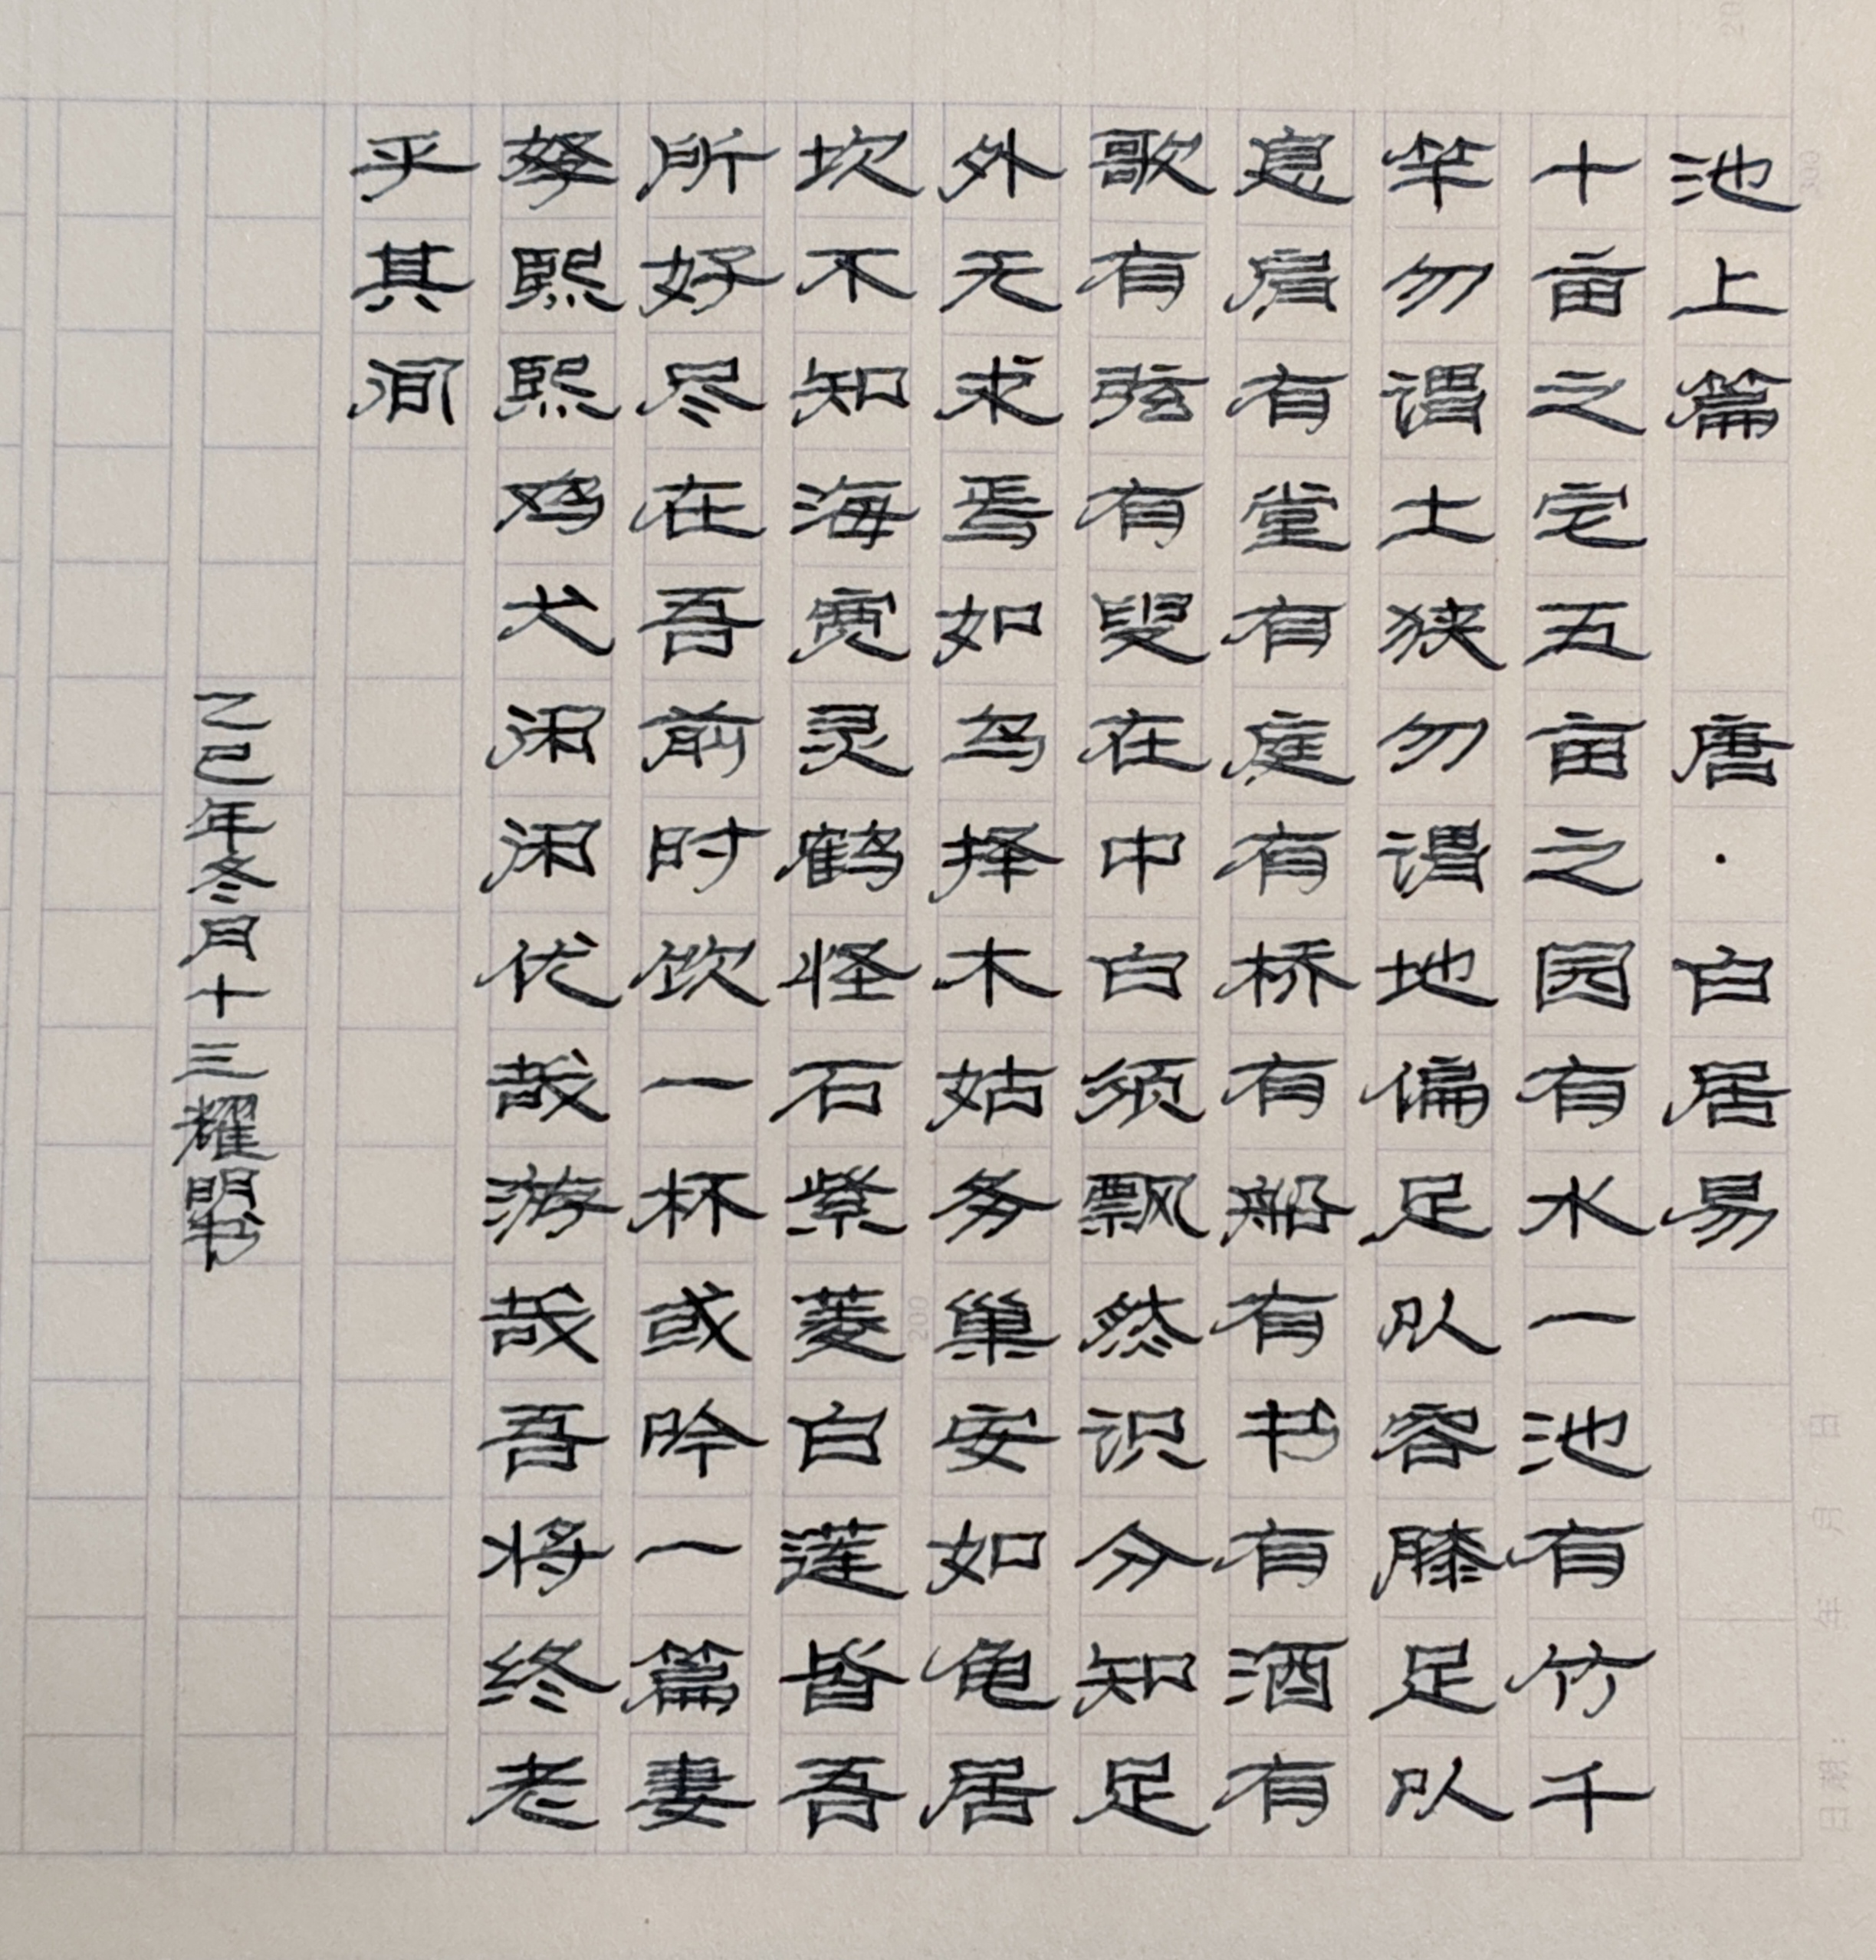 池上篇 唐·白居易
十亩之宅五亩之园有水一池有竹千
竿勿谓土狭勿谓地偏足以容膝足以
息肩有堂有庭有桥有船有书有酒有
歌有弦有叟在中白须飘然识分知足
外无求焉如鸟择木姑务巢安如龟居
坎不知海宽灵鹤怪石紫菱白莲皆吾
所好尽在吾前时饮一杯或吟一篇妻
孥熙熙鸡犬闲闲优哉游哉吾将终老
乎其间
乙巳年冬月十三耀明书